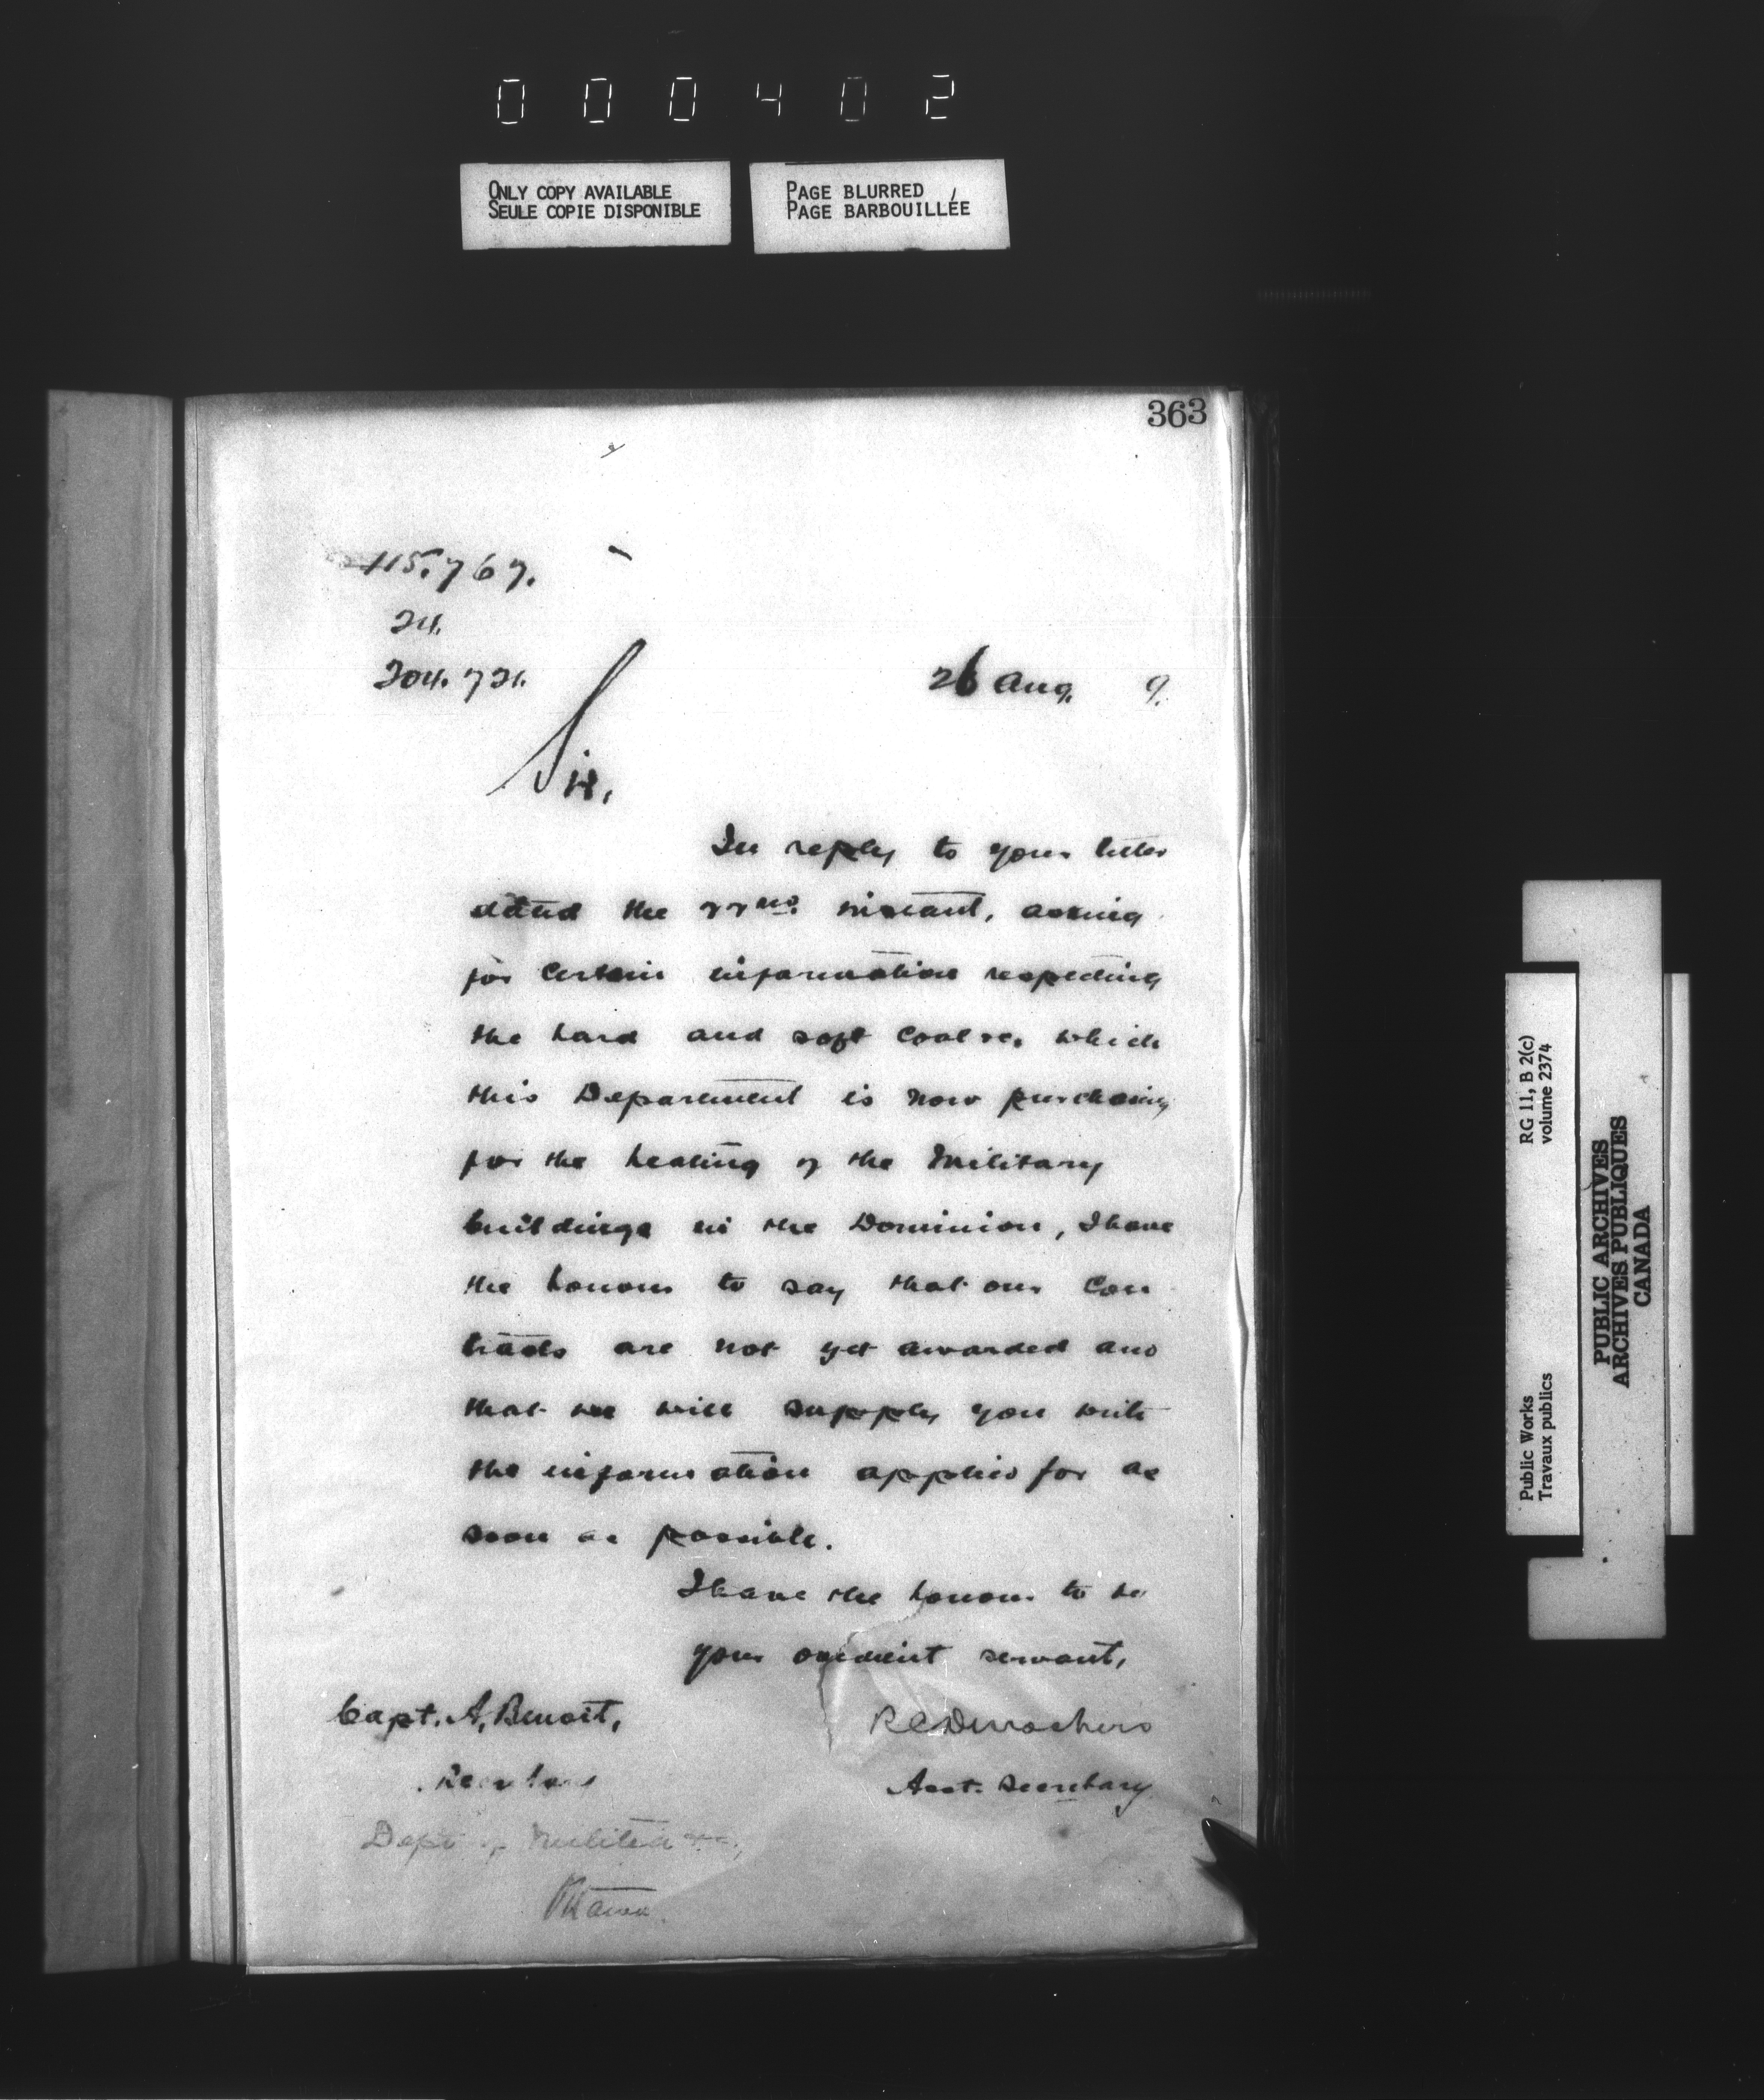 000402
ONLY COPY AVAILABLE
SEULE COPIE DISPONIBLE
PAGE BLURRED
PAGE BARBOUILLÉE
363
115.767.
24.
204.721.
26 Aug. 9.
Sir,
In reply to your letter
dated the 22nd. instant, asking
for certain information respecting
the hard and soft coal &c. which
this Department is now purchasing
for the heating of the Military
buildings in the Dominion, I have
the honour to say that our Con
tracts are not yet awarded and
that we will supply you with
the information applied for as
soon as possible.
I have the honour to be
your obedient servant,
Capt. A. Benoit,
RC Desrochers
Secretary
Asst. Secretary
Dept of Militia &c.,
Ottawa.
Public Works
Travaux publics
RG 11, B 2(c)
volume 2374
PUBLIC ARCHIVES
ARCHIVES PUBLIQUES
CANADA